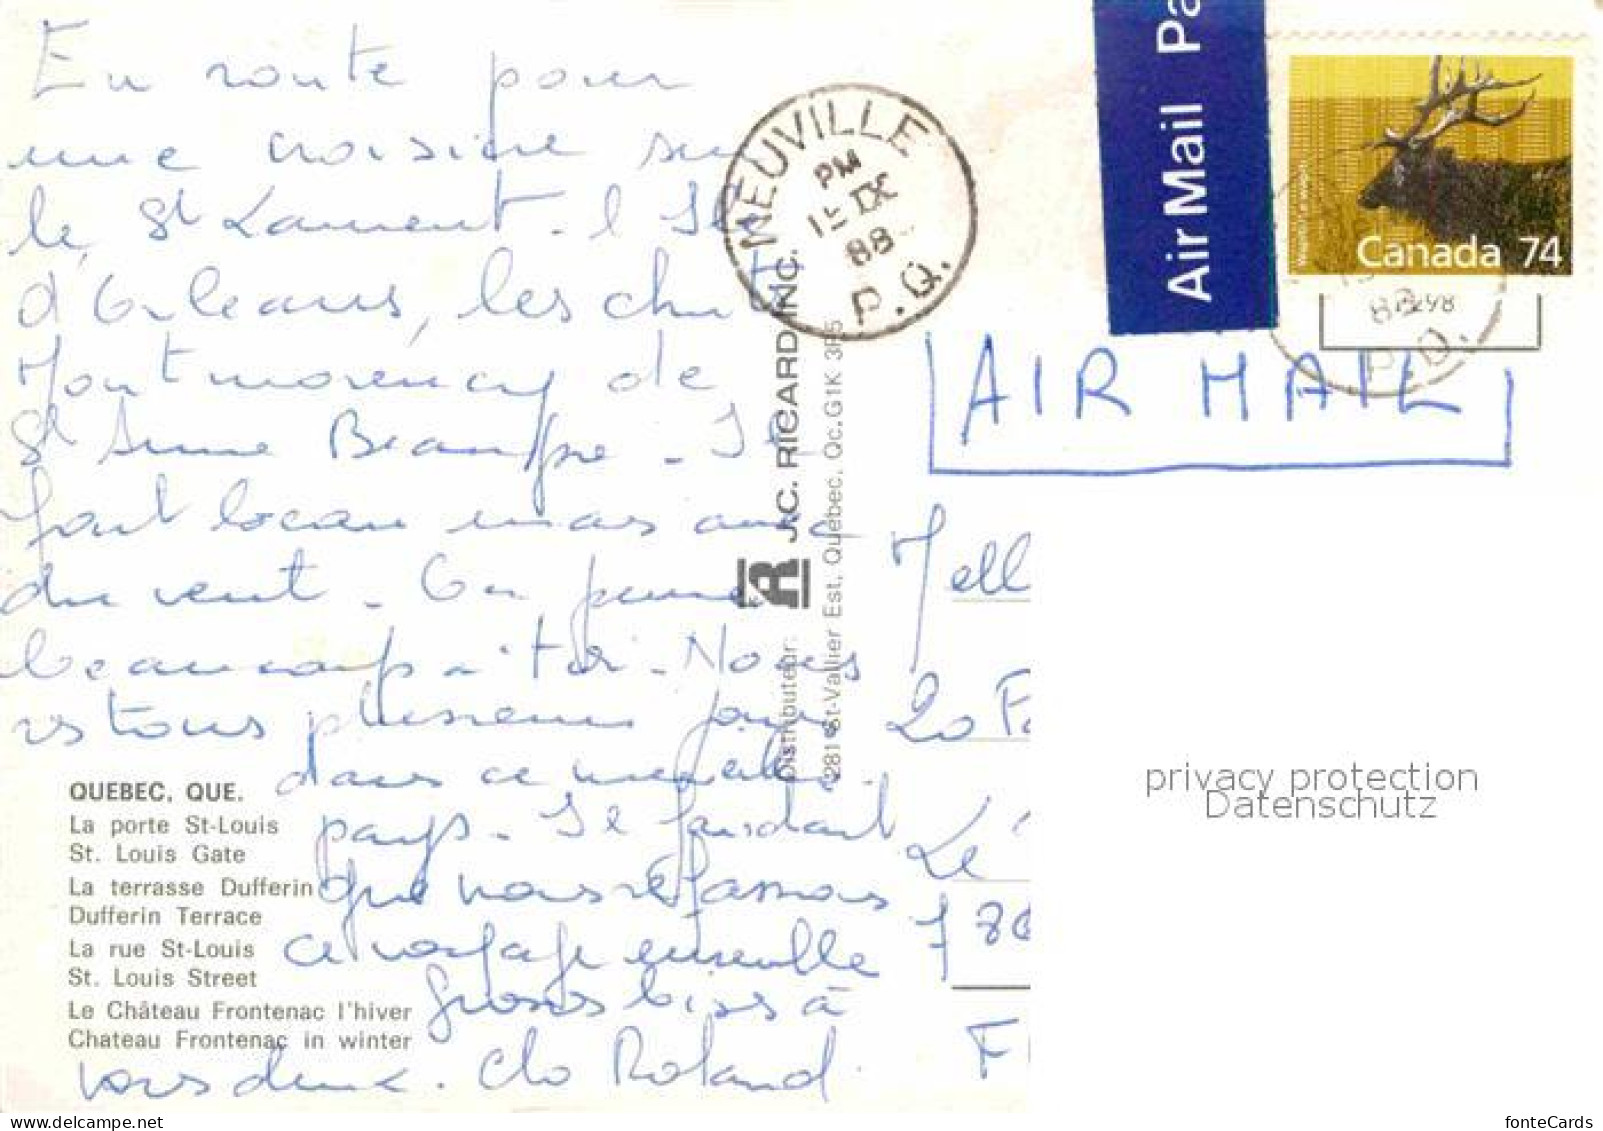 En route pour
une croisière sur
le St Laurent. l'Ile
d'Orleans, les chut
Montmorency de
St Anne Beaupre - Il
fait beau mais avec
du vent. On pense
beaucoup à toi. Nous
restons plusieurs jours
dans ce merveilleux
pays. Il faudrait
que nous refassions
ce voyage ensemble
Grosses bises à
vous deux. Clo Roland
QUEBEC, QUE.
La porte St-Louis
St. Louis Gate
La terrasse Dufferin
Dufferin Terrace
La rue St-Louis
St. Louis Street
Le Château Frontenac l'hiver
Chateau Frontenac in winter
Distributeur: J.C. RICARD INC.
281 St-Vallier Est, Québec, Qc. G1K 3P5
NEUVILLE
PM
15 IX
88
P.Q.
Air Mail Pa
Canada 74
88
P.Q.
AIR MAIL
Mell
20 F
Le
78
F
privacy protection
Datenschutz
fonteCards